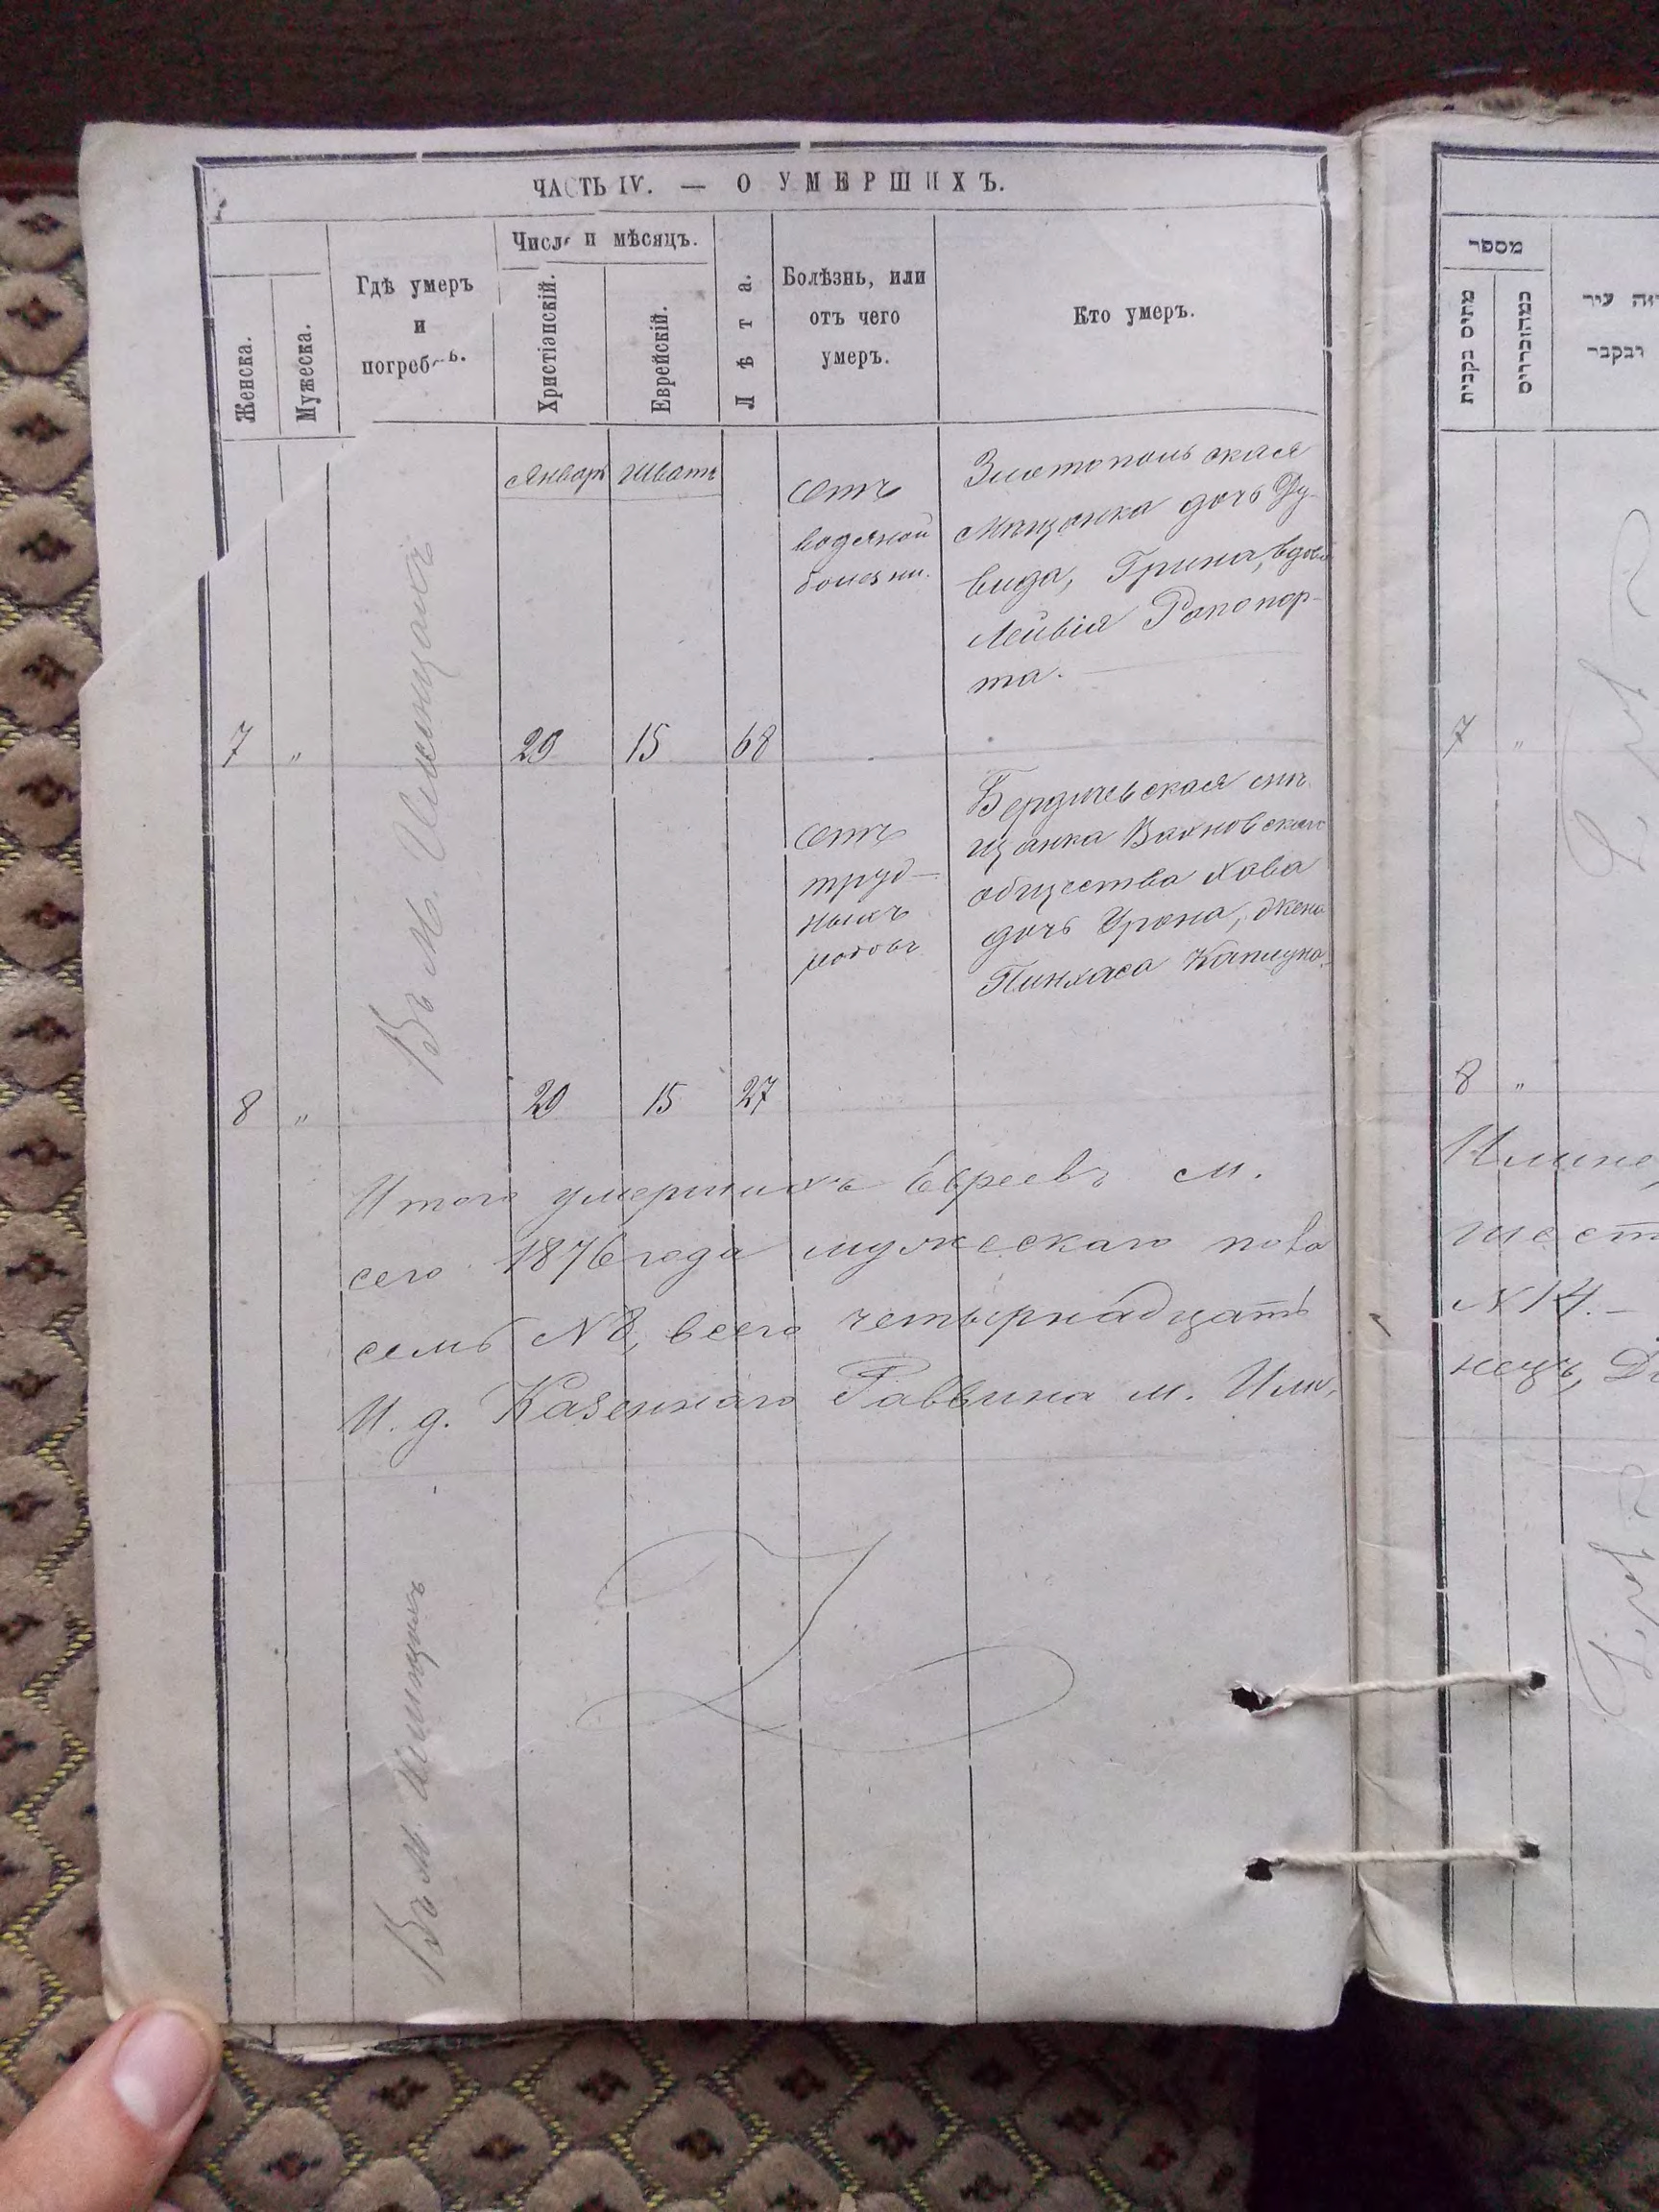 ЧАСТЬ IV. — О УМЕРШИХЪ.
Женска.
Мужеска.
Гдѣ умеръ
и
погребенъ.
Число и мѣсяцъ.
Христіанскій.
Еврейскій.
Лѣта.
Болѣзнь, или
отъ чего
умеръ.
Кто умеръ.
Январь Шватъ
Отъ
водяной
болезни.
Златопольская
Мѣщанка дочь Ду-
вида, Грина, вдова
Лейвія Рапопор-
та.
7 „ 29 15 68
Въ М. Илинцахъ
Отъ
труд-
ныхъ
родовъ
Бердичевская мѣ-
щанка Вахновскаго
общества Хова
дочь Урона, жена
Пинхаса Каплуна.
8 „ 29 15 27
Итого умершихъ Евреевъ м.
сего 1876 года мужескаго пола
семь № 8, всего четырнадцать
И. д. Казеннаго Раввина м. Или,
Въ М. Илинцахъ
מספר
מתים נקבות
7 „
8 „
Илине,
шест
№ 14. —
нецъ,